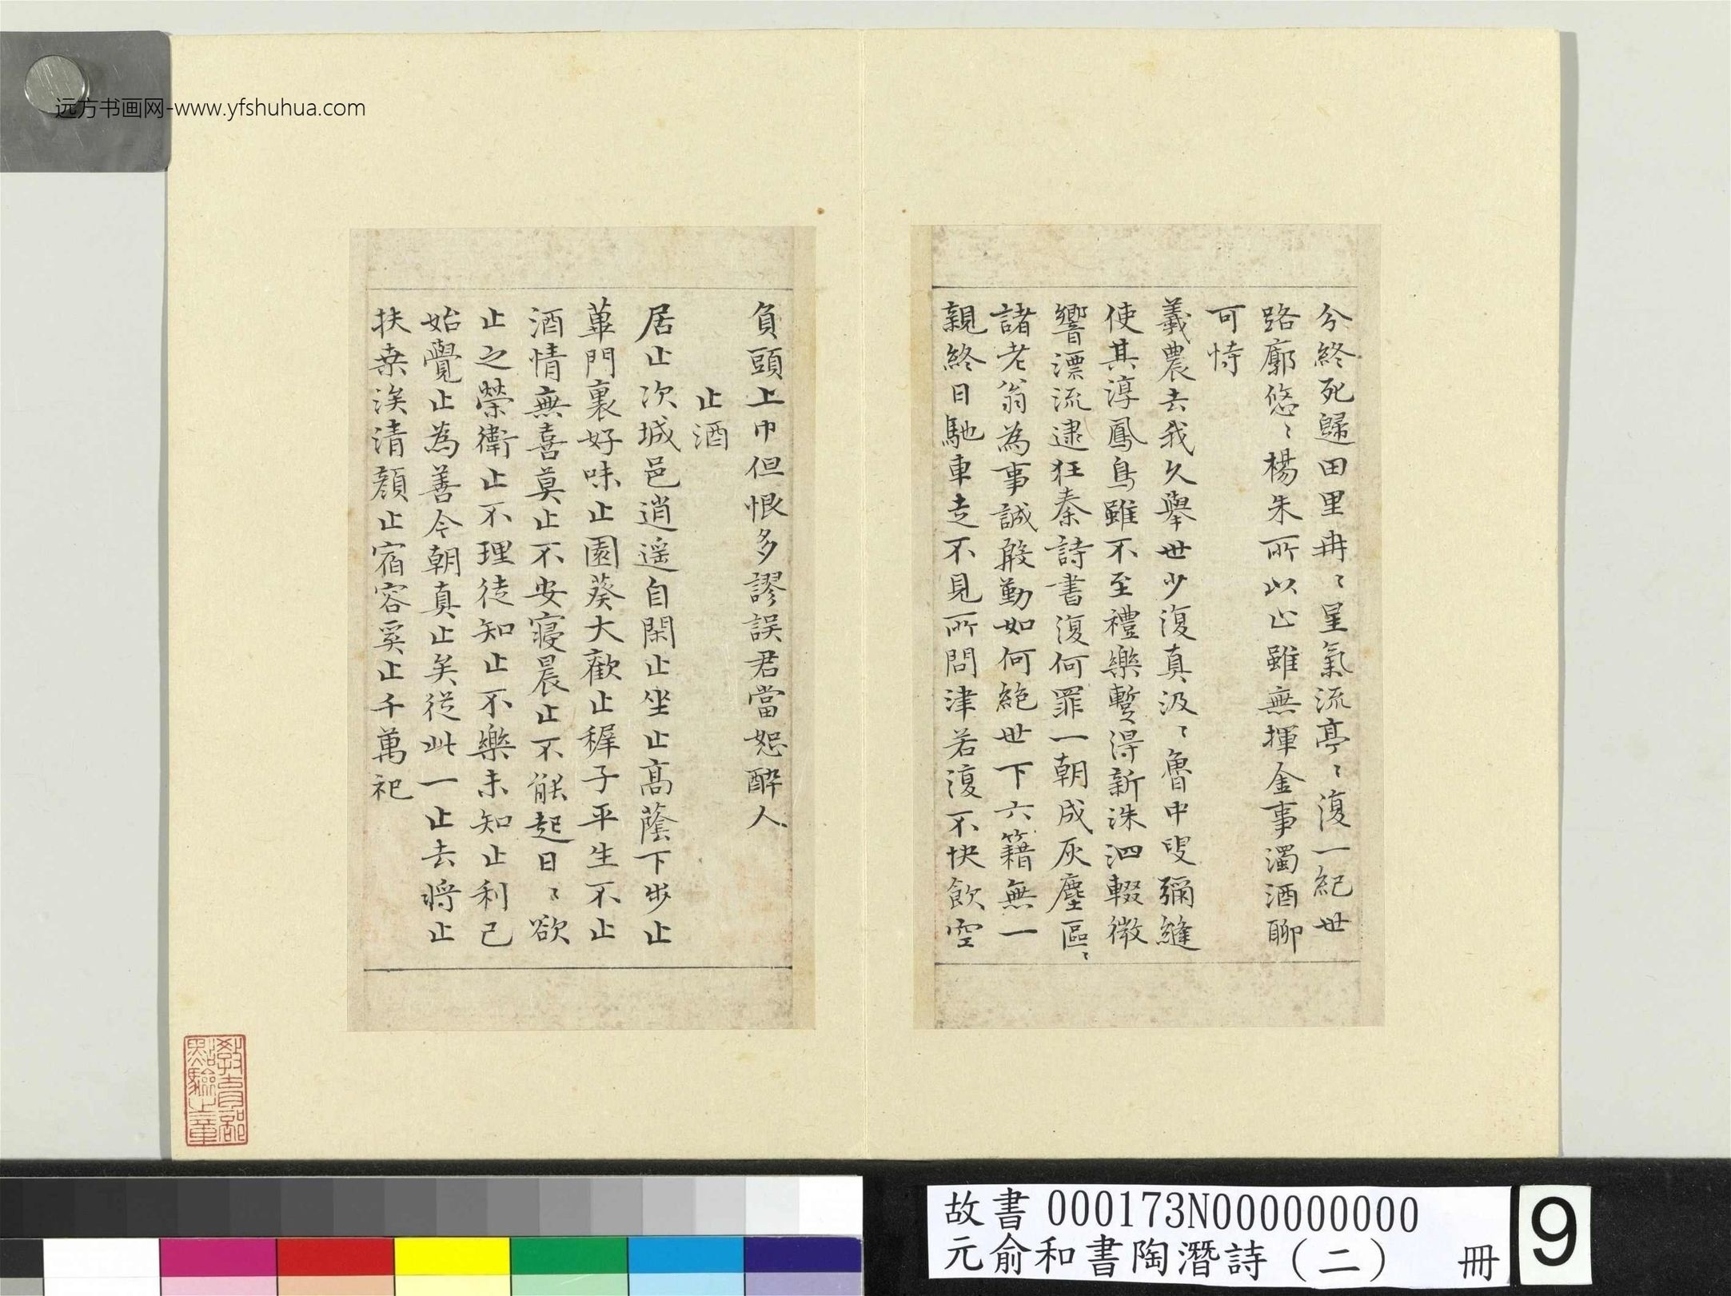 远方书画网-www.yfshuhua.com
分終死歸田里冉〻星氣流亭〻復一紀世
路廓悠〻楊朱所以止雖無揮金事濁酒聊
可恃
羲農去我久舉世少復真汲〻魯中叟彌縫
使其淳鳳鳥雖不至禮樂暫得新洙泗輟微
響漂流逮狂秦詩書復何罪一朝成灰塵區〻
諸老翁為事誠殷勤如何絕世下六籍無一
親終日馳車走不見所問津若復不快飲空
負頭上巾但恨多謬誤君當恕醉人
止酒
居止次城邑逍遥自閑止坐止高蔭下步止
蓽門裏好味止園葵大歡止稺子平生不止
酒情無喜莫止不安寢晨止不能起日〻欲
止之榮衛止不理徒知止不樂未知止利己
始覺止為善今朝真止矣從此一止去將止
扶桒涘清顏止宿容奚止千萬祀
教育部
點驗之章
故書 000173N000000000
元俞和書陶潛詩（二） 冊
9